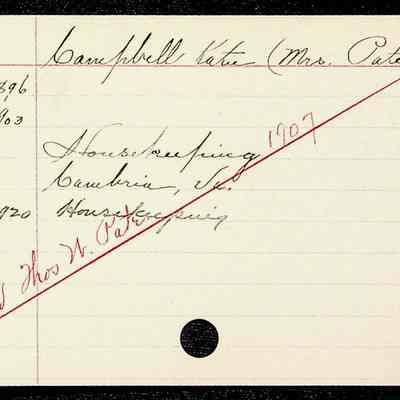 Campbell Katie (Mrs. Pate
896
903
Housekeeping 1907
Cambria, Va.
920 Housekeeping
d Thos W. Pate